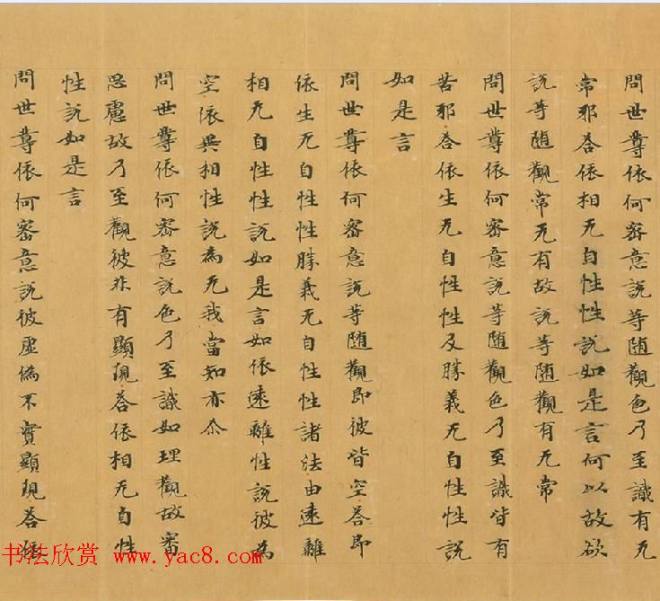 問世尊依何密意說等隨觀色乃至識有无
常邪荅依相无自性性說如是言何以故欲
說等隨觀常无有故說等隨觀有无常
問世尊依何密意說等隨觀色乃至識皆有
苦邪荅依生无自性性及勝義无自性性說
如是言
問世尊依何密意說等隨觀即彼皆空荅即
依生无自性性勝義无自性性諸法由遠離
相无自性性說如是言如依遠離性說彼為
空依異相性說為无我當知亦尒
問世尊依何密意說色乃至識如理觀故審
思慮故乃至觀彼非有顯現荅依相无自性
性說如是言
問世尊依何密意說彼虛偽不實顯現荅依
书法欣赏 www.yac8.com